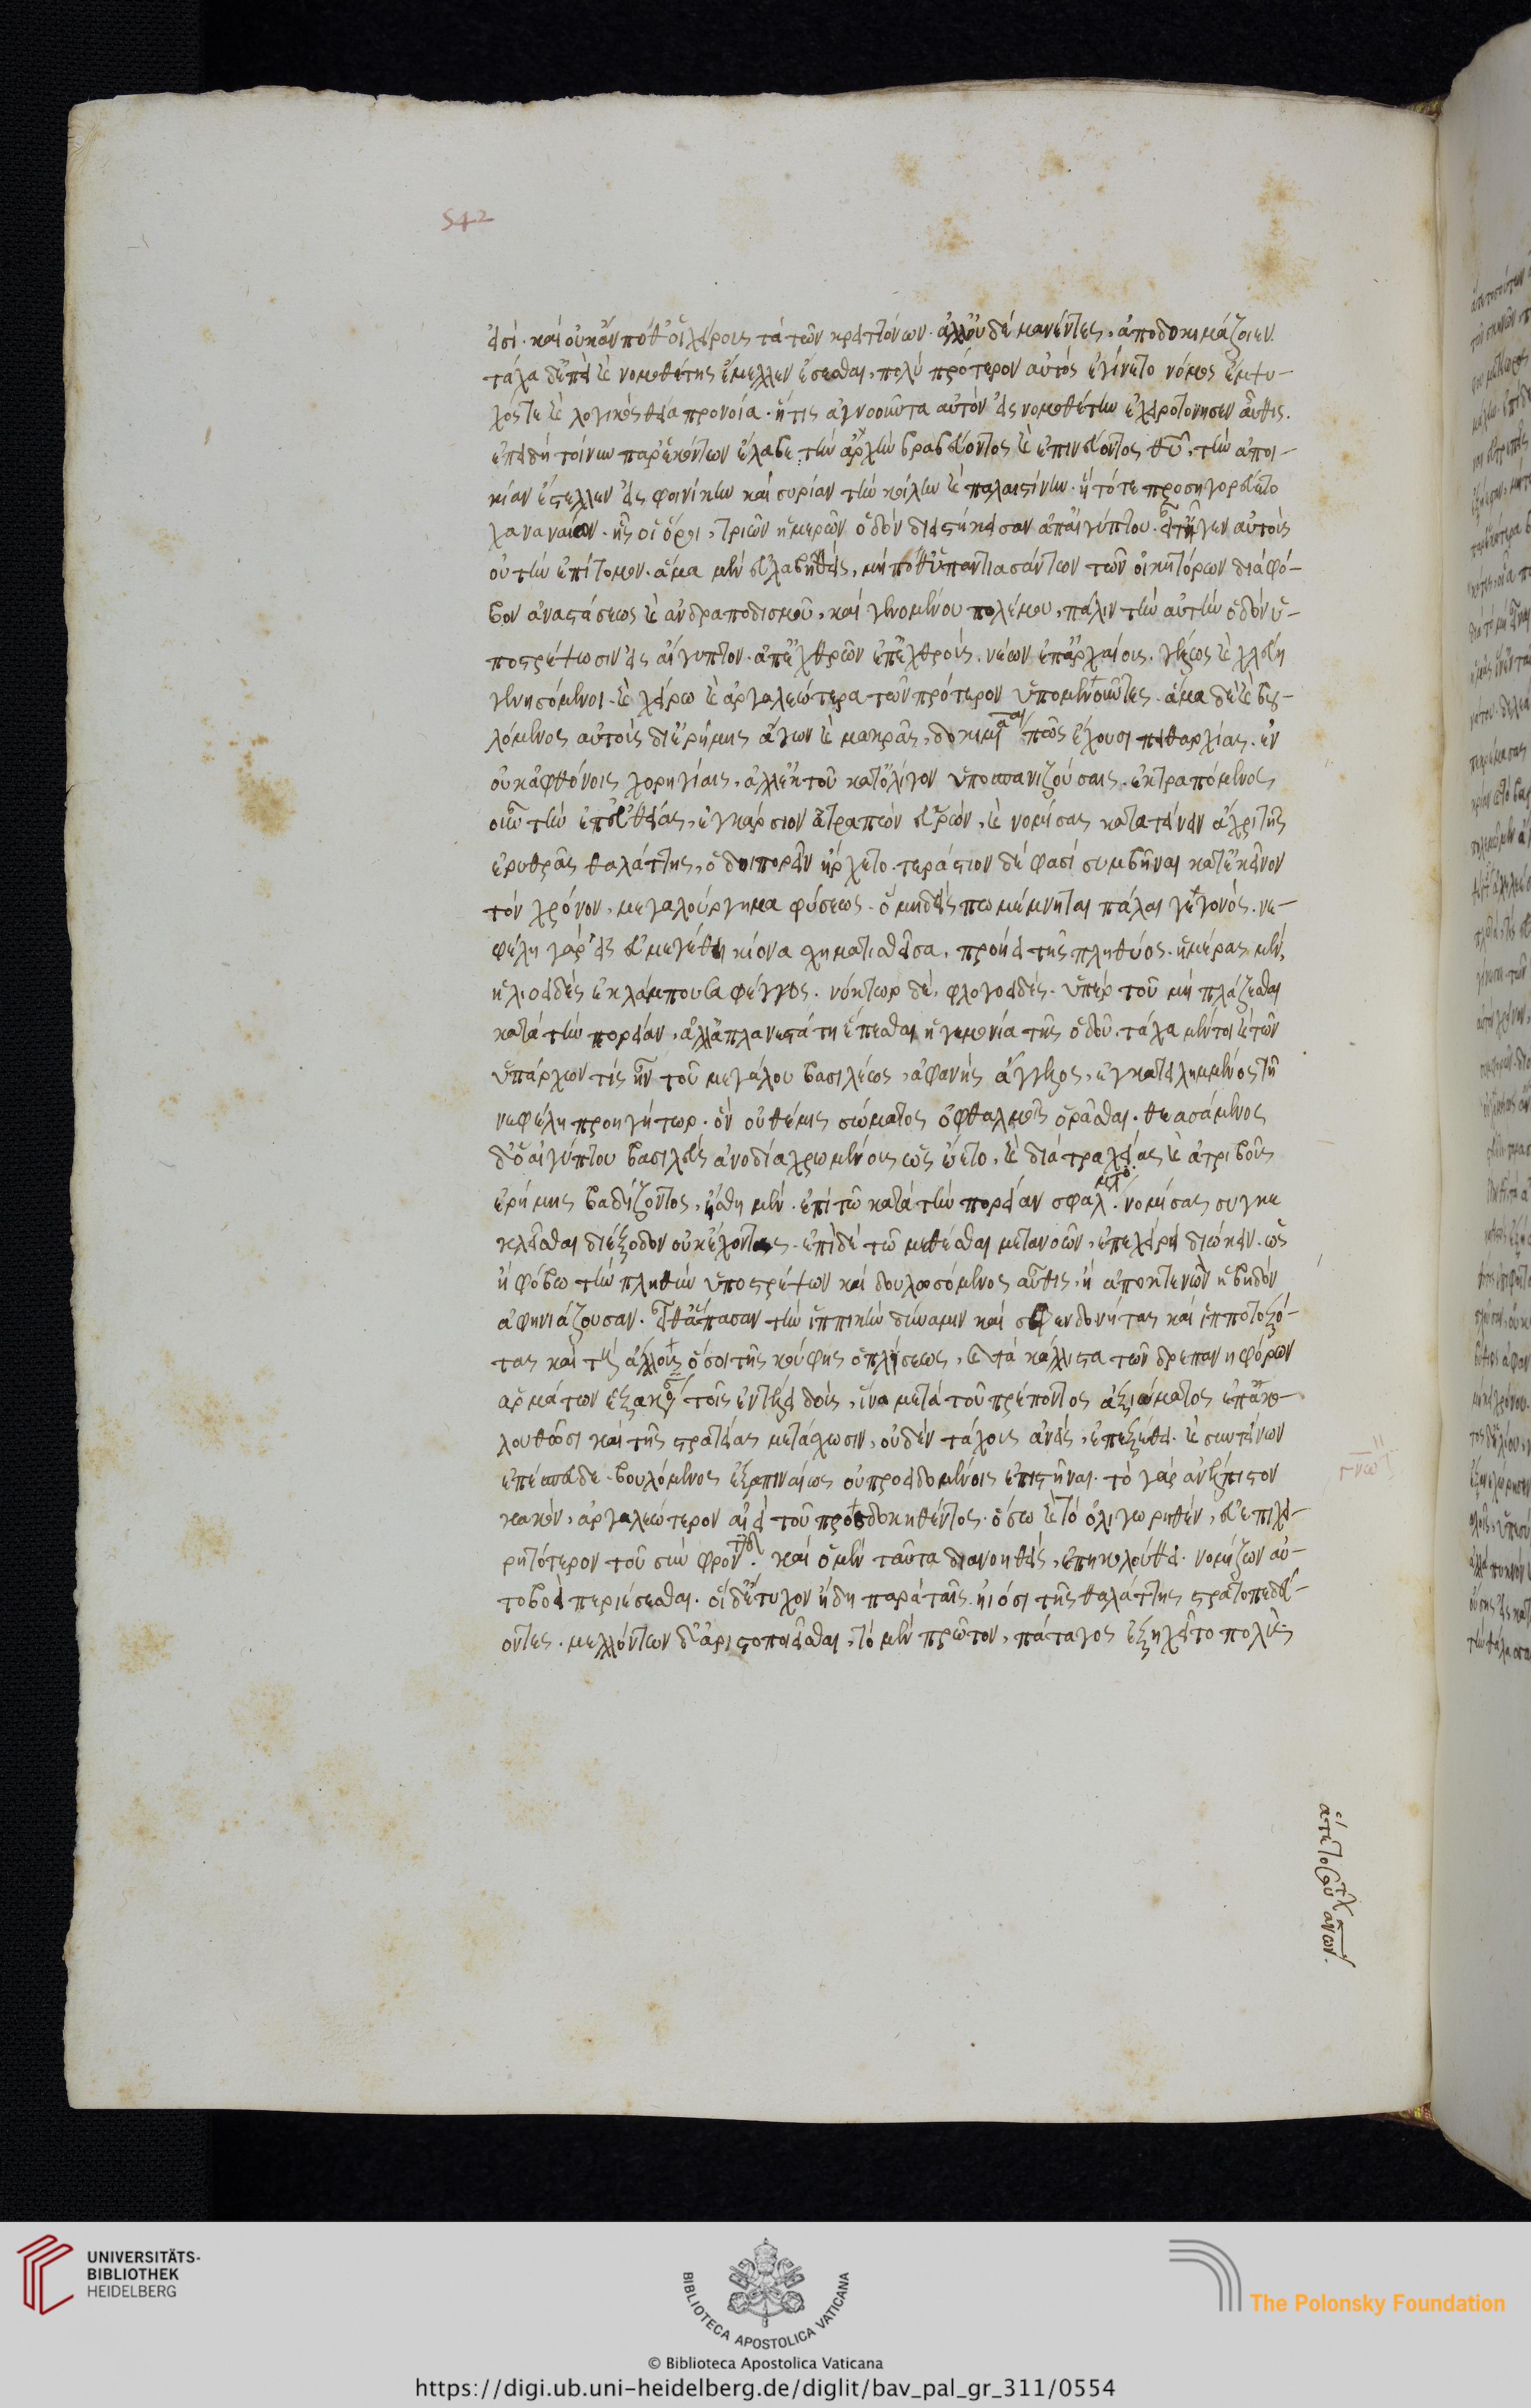 542
εἰσί· καὶ οὐκ ἄν ποθ' οἱ χείρους τὰ τῶν κρειττόνων· ἀλλ' οὐδὲ μανέντες, ἀποδοκιμάζοιεν.
τάχα δ' ἐπεὶ καὶ νομοθέτης ἔμελλεν ἔσεσθαι, πολὺ πρότερον αὐτὸς ἐγίνετο νόμος ἔμψυ-
χός τε καὶ λογικὸς θεία προνοία· ἥτις ἀγνοοῦντα αὐτὸν εἰς νομοθέτην ἐχειροτόνησεν αὖθις.
ἐπειδὴ τοίνυν παρ' ἑκόντων ἔλαβε τὴν ἀρχὴν βραβεύοντος καὶ ἐπινεύοντος θυ, τὴν ἀποι-
κίαν ἔστελλεν εἰς φοινίκην καὶ συρίαν τὴν κοίλην καὶ παλαιστίνην· ἣ τότε προσηγορεύετο
χαναναίων· ἧς οἱ ὅροι, τριῶν ἡμερῶν ὁδὸν διεστήκεσαν ἀπ' αἰγύπτου· εἶτ' ἦγεν αὐτοὺς
οὐ τὴν ἐπίτομον· ἅμα μὲν εὐλαβηθεὶς, μή ποθ' ὑπαντιασάντων τῶν οἰκητόρων διὰ φό-
βον ἀναστάσεως καὶ ἀνδραποδισμοῦ, καὶ γενομένου πολέμου, πάλιν τὴν αὐτὴν ὁδὸν ὑ-
ποστρέψωσιν εἰς αἴγυπτον· ἀπ' ἐχθρῶν ἐπ' ἐχθροὺς· νέων ἐπ' ἀρχαίοις· γέλως καὶ χλεύη
γενησόμενοι· καὶ χείρω καὶ ἀργαλεώτερα τῶν πρότερον ὑπομενοῦντες· ἅμα δὲ καὶ βου-
λόμενος αὐτοὺς δι' ἐρήμης ἄγων καὶ μακρᾶς, δοκιμάσαι πῶς ἔχουσι πειθαρχίας· ἐν
οὐκ ἀφθόνοις χορηγίαις, ἀλλ' ἐκ τοῦ κατ' ὀλίγον ὑποσπανιζούσαις· ἐκτραπόμενος
οὖν τὴν ἐπ' εὐθείας, ἐγκάρσιον ἀτραπὸν εὑρὼν, καὶ νομίσας κατατείνειν ἄχρι τῆς
ἐρυθρᾶς θαλάττης, ὁδοιπορεῖν ἤρχετο· τεράστιον δέ φασι συμβῆναι κατ' ἐκεῖνον
τὸν χρόνον, μεγαλούργημα φύσεως· ὃ μηδείς πω μέμνηται πάλαι γεγονός· νε-
φέλη γὰρ εἰς εὐμεγέθη κίονα σχηματισθεῖσα, προῄει τῆς πληθύος· ἡμέρας μὲν,
ἡλιοειδὲς ἐκλάμπουσα φέγγος· νύκτωρ δὲ, φλογοειδές· ὑπὲρ τοῦ μὴ πλάζεσθαι
κατὰ τὴν πορείαν, ἀλλ' ἀπλανεστάτη ἕπεσθαι ἡγεμονία τῆς ὁδοῦ· τάχα μέντοι καὶ τῶν
ὑπάρχων τίς ἦν τοῦ μεγάλου βασιλέως, ἀφανὴς ἄγγελος, ἐγκατειλημμένος τῆ
νεφέλη προηγήτωρ· ὃν οὐ θέμις σώματος ὀφθαλμοῖς ὁρᾶσθαι· θεασάμενος
δ' ὁ αἰγύπτου βασιλεὺς ἀνοδία χρωμένους ὡς ᾤετο, καὶ διὰ τραχείας καὶ ἀτριβοῦς
ἐρήμης βαδίζοντας, ἥσθη μὲν· ἐπὶ τῶ κατὰ τὴν πορείαν σφάλματι· νομίσας συγκε
κλεῖσθαι διέξοδον οὐκ ἔχοντας· ἐπὶ δὲ τῶ μεθέσθαι μετανοῶν, ἐπεχείρει διώκειν· ὡς
ἢ φόβω τὴν πληθὺν ὑποστρέψων καὶ δουλωσόμενος αὖθις, ἢ ἀποκτενῶν ἡβηδὸν
ἀφηνιάζουσαν· εἶθ' ἅπασαν τὴν ἱππικὴν δύναμιν καὶ σφενδονήτας καὶ ἱπποτοξό-
τας καὶ τοὺς ἄλλους ὅσοι τῆς κούφης ὁπλίσεως, καὶ τὰ κάλλιστα τῶν δρεπανηφόρων
ἁρμάτων ἑξακόσια τοῖς ἐν τέλει δοὺς, ἵνα μετὰ τοῦ πρέποντος ἀξιώματος ἐπακο-
λουθῶσι καὶ τῆς στρατείας μετάσχωσιν, οὐδὲν τάχους ἀνεὶς, ἐπεξέθει· καὶ συντείνων
ἐπέσπευδε· βουλόμενος ἐξαπιναίως οὐ προειδομένοις ἐπιστῆναι· τὸ γὰρ ἀνέλπιστον
κακὸν, ἀργαλεώτερον αἰεὶ τοῦ προσδοκηθέντος· ὅσω καὶ τὸ ὀλιγωρηθὲν, εὐεπιχει-
ρητότερον τοῦ σὺν φροντίδι· καὶ ὁ μὲν ταῦτα διανοηθεὶς, ἐπηκολούθει· νομίζων αὐ-
τοβοεὶ περιέσεσθαι· οἱ δ' ἔτυχον ἤδη παρὰ ταῖς ἠιόσι τῆς θαλάττης στρατοπεδεύ-
οντες· μελλόντων δ' ἀριστοποιεῖσθαι, τὸ μὲν πρῶτον, πάταγος ἐξηχεῖτο πολὺς
UNIVERSITÄTS-
BIBLIOTHEK
HEIDELBERG
BIBLIOTECA APOSTOLICA VATICANA
The Polonsky Foundation
© Biblioteca Apostolica Vaticana
https://digi.ub.uni-heidelberg.de/diglit/bav_pal_gr_311/0554